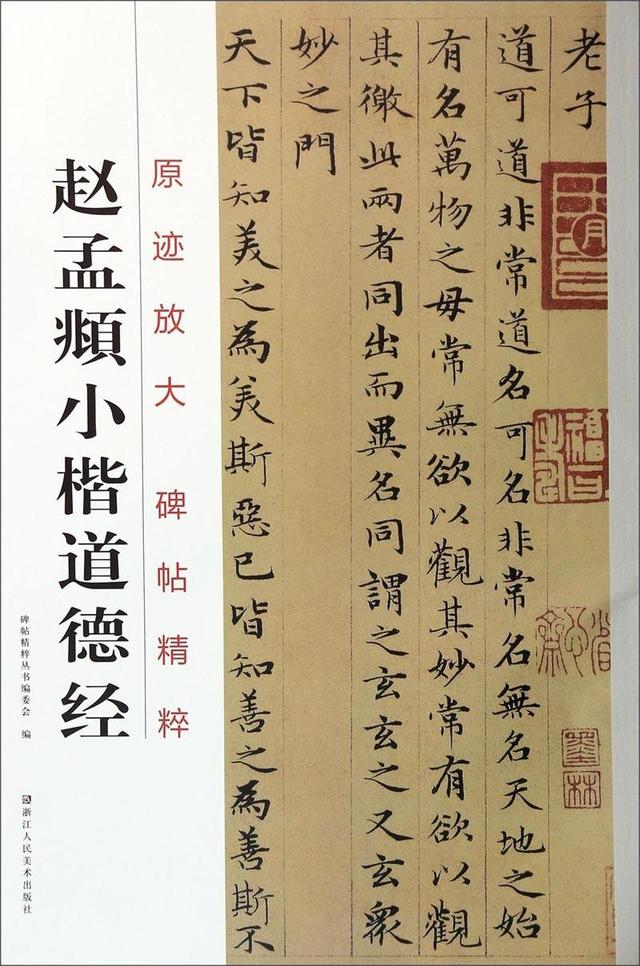 老子
道可道非常道名可名非常名無名天地之始
有名萬物之母常無欲以觀其妙常有欲以觀
其徼此兩者同出而異名同謂之玄玄之又玄衆
妙之門
天下皆知美之為美斯惡已皆知善之為善斯不
墨林
原迹放大 碑帖精粹
赵孟頫小楷道德经
碑帖精粹丛书编委会 编
浙江人民美术出版社